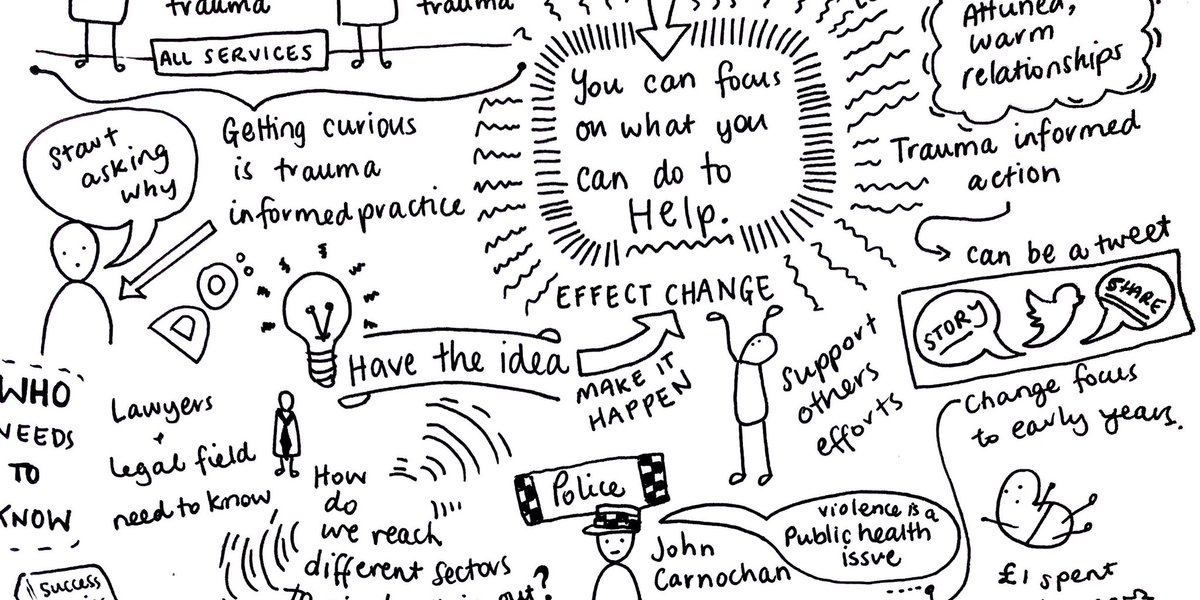 trauma
trauma
ALL SERVICES
Start
asking
why
Getting curious
is trauma
informed practice
You can focus
on what you
can do to
Help.
Attuned,
warm
relationships
Trauma informed
action
can be a tweet
STORY
SHARE
EFFECT CHANGE
Have the idea
MAKE IT
HAPPEN
support
others
efforts
Change focus
to early years.
WHO
NEEDS
TO
KNOW
Lawyers
+
legal field
need to know
How
do
we reach
different sectors
out?
Police
John
Carnochan
violence is a
Public health
issue
£1 spent
Success